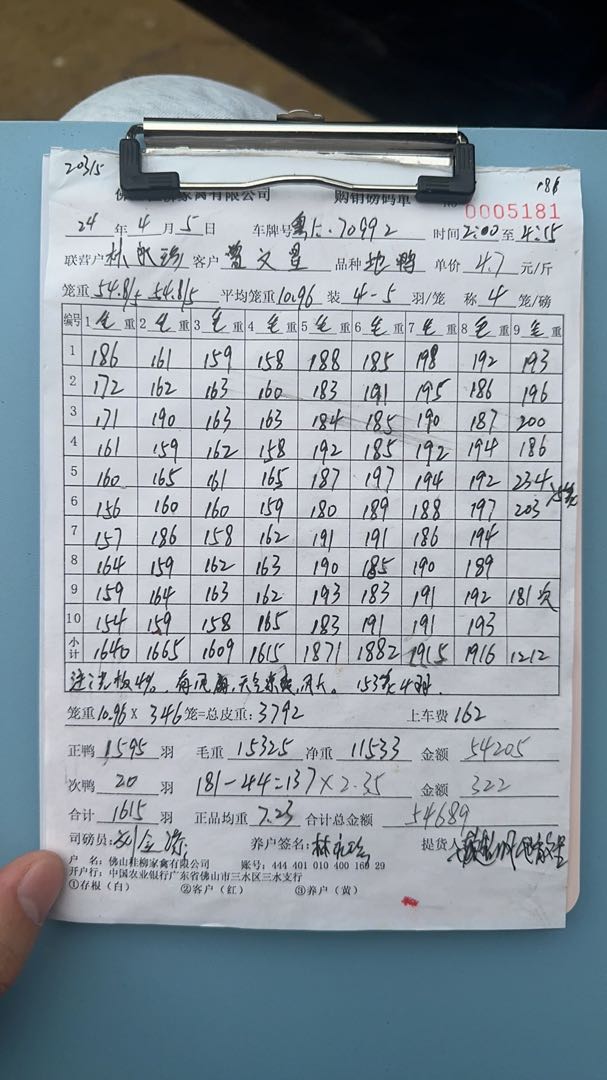 20315
186
柳家禽有限公司 购销磅码单 No 0005181
24 年 4 月 5 日 车牌号 70992 时间 2:00 至 4:15
联营户 林 客户 曾文 品种 地鸭 单价 4.7 元/斤
笼重 54.8/5 54.8/5 平均笼重 10.96 装 4-5 羽/笼 称 4 笼/磅
编号 1 毛 重 2 毛 重 3 毛 重 4 毛 重 5 毛 重 6 毛 重 7 毛 重 8 毛 重 9 毛 重
1 186 161 159 158 188 185 198 192 193
2 172 162 163 160 183 191 195 186 196
3 171 190 163 163 184 185 190 187 200
4 161 159 162 158 192 185 192 194 186
5 160 165 161 165 187 197 194 192 234
6 156 160 160 159 180 189 188 197 203
7 157 186 158 162 191 191 186 194
8 164 159 162 163 190 185 190 189
9 159 164 163 162 193 183 191 192 181次
10 154 159 158 165 183 191 191 193
小计 1640 1665 1609 1615 1871 1882 1915 1916 1212
注: 4%. 天气 153 4羽.
笼重 10.96 X 346 笼=总皮重: 3792 上车费 162
正鸭 1595 羽 毛重 15325 净重 11533 金额 54205
次鸭 20 羽 181-44=137×2.35 金额 322
合计 1615 羽 正品均重 7.23 合计总金额 54689
司磅员: 刘金 养户签名: 林 提货人
户 名: 佛山桂柳家禽有限公司 账号: 444 401 010 400 169 29
开户行: 中国农业银行广东省佛山市三水区三水支行
①存根（白） ②客户（红） ③养户（黄）